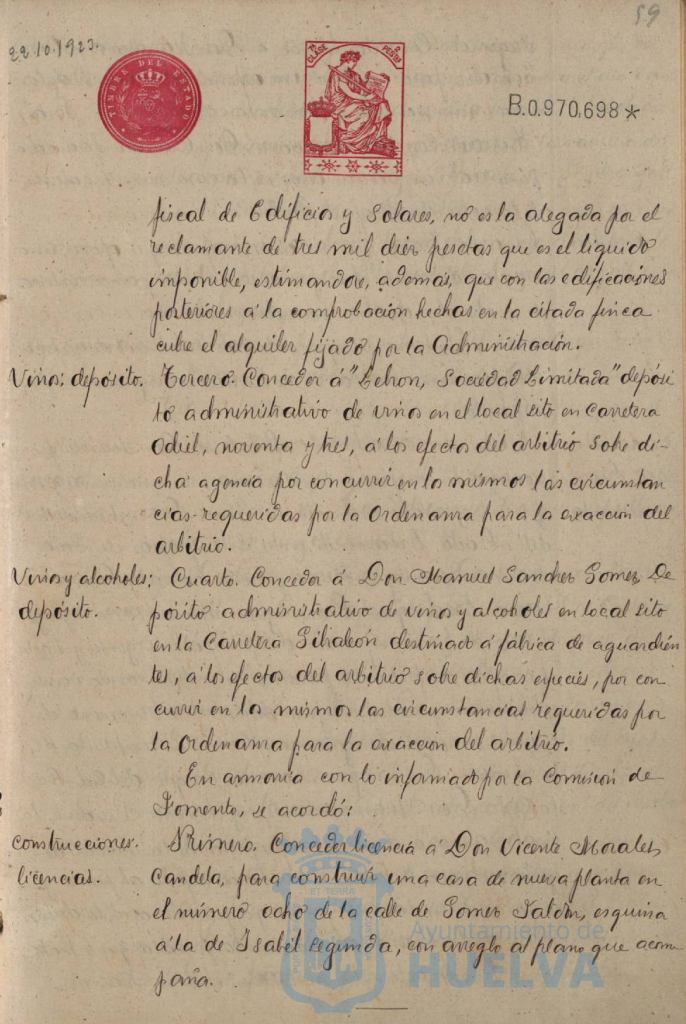 59
22.10.1923.
TIMBRE DEL ESTADO
7ª CLASE 2 PESTAS
B.0.970.698*
fiscal de Edificios y Solares, no es la alegada por el
reclamante de tres mil diez pesetas que es el liquido
imponible, estimandose, ademas, que con las edificaciones
posteriores á la comprobación hechas en la citada finca
cubre el alquiler fijado por la Administración.
Vinos; depósito. Tercero. Conceder á "Lehon, Sociedad Limitada" depósi
to administrativo de vinos en el local sito en Carretera
Odiel, noventa y tres, á los efectos del arbitrio sobre di-
cha agencia por concurrir en los mismos las circunstan
cias requeridas por la Ordenanza para la exaccion del
arbitrio.
Vinos y alcoholes; Cuarto. Conceder á Don Manuel Sanchez Gomez De
depósito. pósito administrativo de vinos y alcoholes en local sito
en la Carretera Gibraleón destinado á fábrica de aguardien
tes, á los efectos del arbitrio sobre dichas especies, por con
currir en los mismos las circunstancias requeridas por
la Ordenanza para la exaccion del arbitrio.
En armonia con lo informado por la Comision de
Fomento, se acordó:
Construcciones. Primero. Conceder licencia á Don Vicente Morales
licencias. Candela, para construir una casa de nueva planta en
el número ocho de la calle de Gomez Jaldon, esquina
á la de Isabel segunda, con arreglo al plano que acom
paña.
Ayuntamiento de
HUELVA